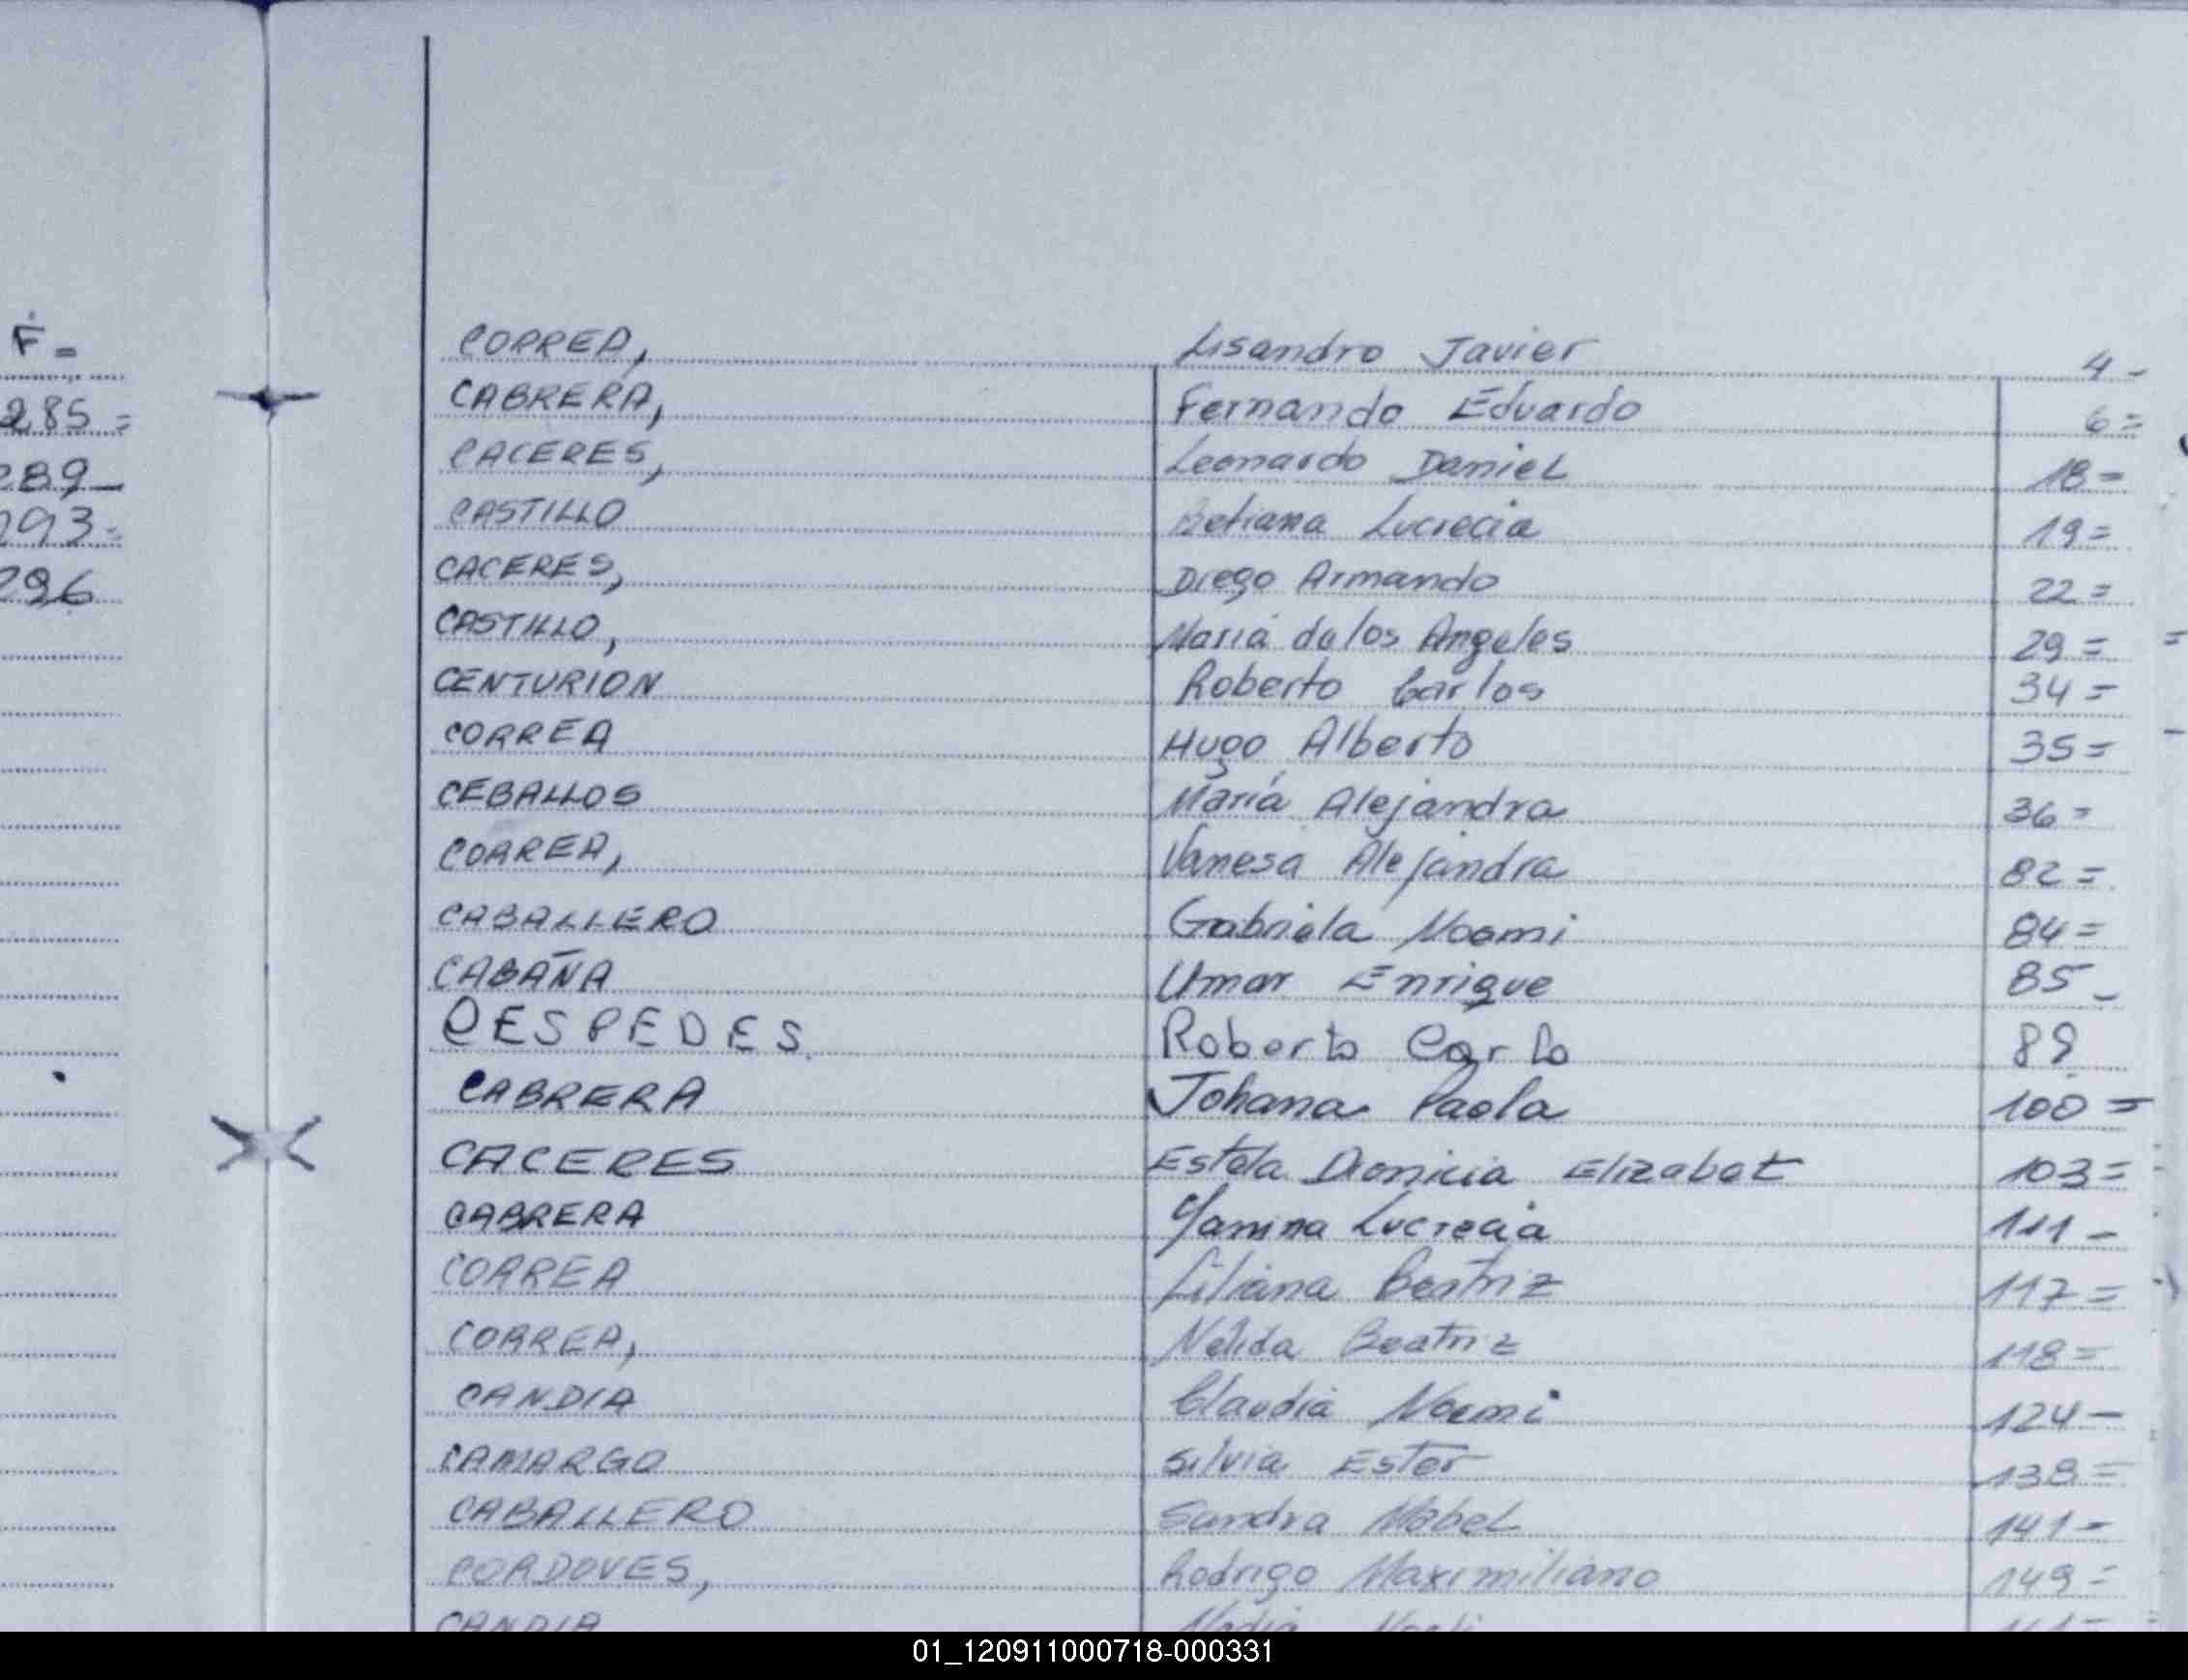 F=
285=
289-
293=
296
CORREA, Lisandro Javier 4-
CABRERA, Fernando Eduardo 6=
CACERES, Leonardo Daniel 18=
CASTILLO Betiana Lucrecia 19=
CACERES, Diego Armando 22=
CASTILLO, María de los Angeles 29=
CENTURION Roberto Carlos 34=
CORREA Hugo Alberto 35=
CEBALLOS María Alejandra 36=
CORREA, Vanesa Alejandra 82=
CABALLERO Gabriela Noemi 84=
CABAÑA Umar Enrique 85-
CESPEDES. Roberto Carlo 89
CABRERA Johana Paola 100=
CACERES Estela Dionicia Elizabet 103=
CABRERA Yanina Lucrecia 111-
CORREA Liliana Beatriz 117=
CORREA, Nelida Beatriz 118=
CANDIA Claudia Noemi 124-
CAMARGO Silvia Ester 138=
CABALLERO Sandra Mabel 141-
CORDOVES, Rodrigo Maximiliano 149=
CANDIA
01_120911000718-000331